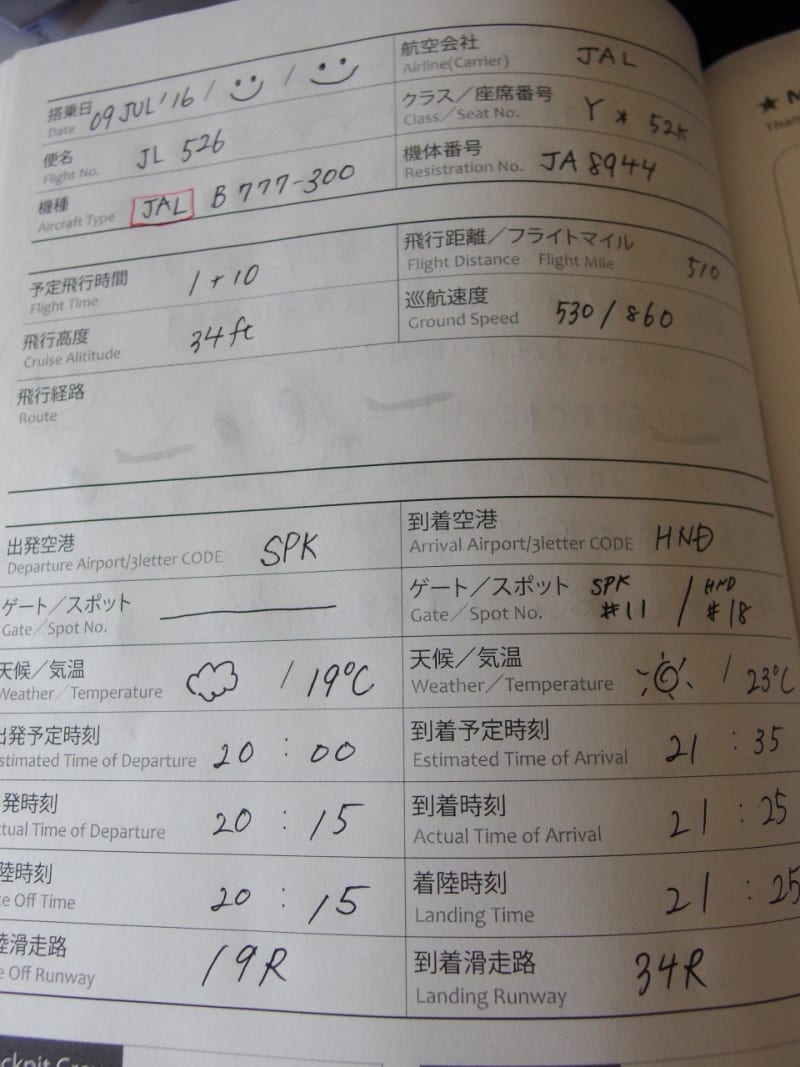 搭乗日 09 JUL '16 / /
Date
航空会社 JAL
Airline(Carrier)
便名 JL 526
Flight No.
クラス/座席番号 Y * 52K
Class/Seat No.
機種 JAL B777-300
Aircraft Type
機体番号 JA8944
Resistration No.
予定飛行時間 1+10
Flight Time
飛行距離/フライトマイル 510
Flight Distance Flight Mile
飛行高度 34ft
Cruise Alititude
巡航速度 530/860
Ground Speed
飛行経路
Route
出発空港 SPK
Departure Airport/3letter CODE
到着空港 HND
Arrival Airport/3letter CODE
ゲート/スポット
Gate/Spot No.
ゲート/スポット SPK #11 / HND #18
Gate/Spot No.
天候/気温 / 19℃
Weather/Temperature
天候/気温 / 23℃
Weather/Temperature
出発予定時刻 20 : 00
stimated Time of Departure
到着予定時刻 21 : 35
Estimated Time of Arrival
発時刻 20 : 15
tual Time of Departure
到着時刻 21 : 25
Actual Time of Arrival
陸時刻 20 : 15
e Off Time
着陸時刻 21 : 25
Landing Time
陸滑走路 19R
e Off Runway
到着滑走路 34R
Landing Runway
ckpit Cre
★ N
Than